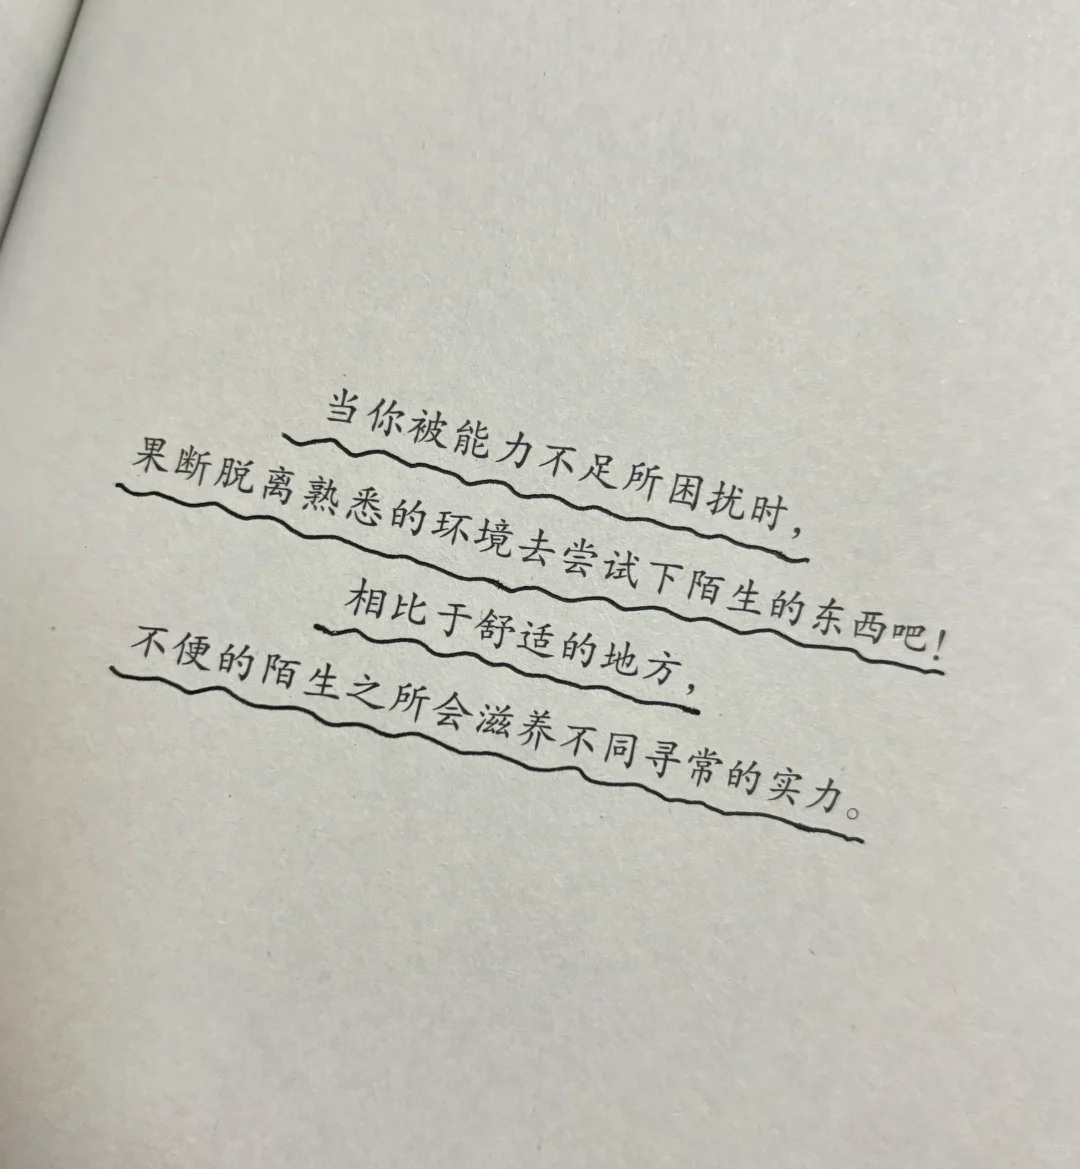 当你被能力不足所困扰时，
果断脱离熟悉的环境去尝试下陌生的东西吧！
相比于舒适的地方，
不便的陌生之所会滋养不同寻常的实力。